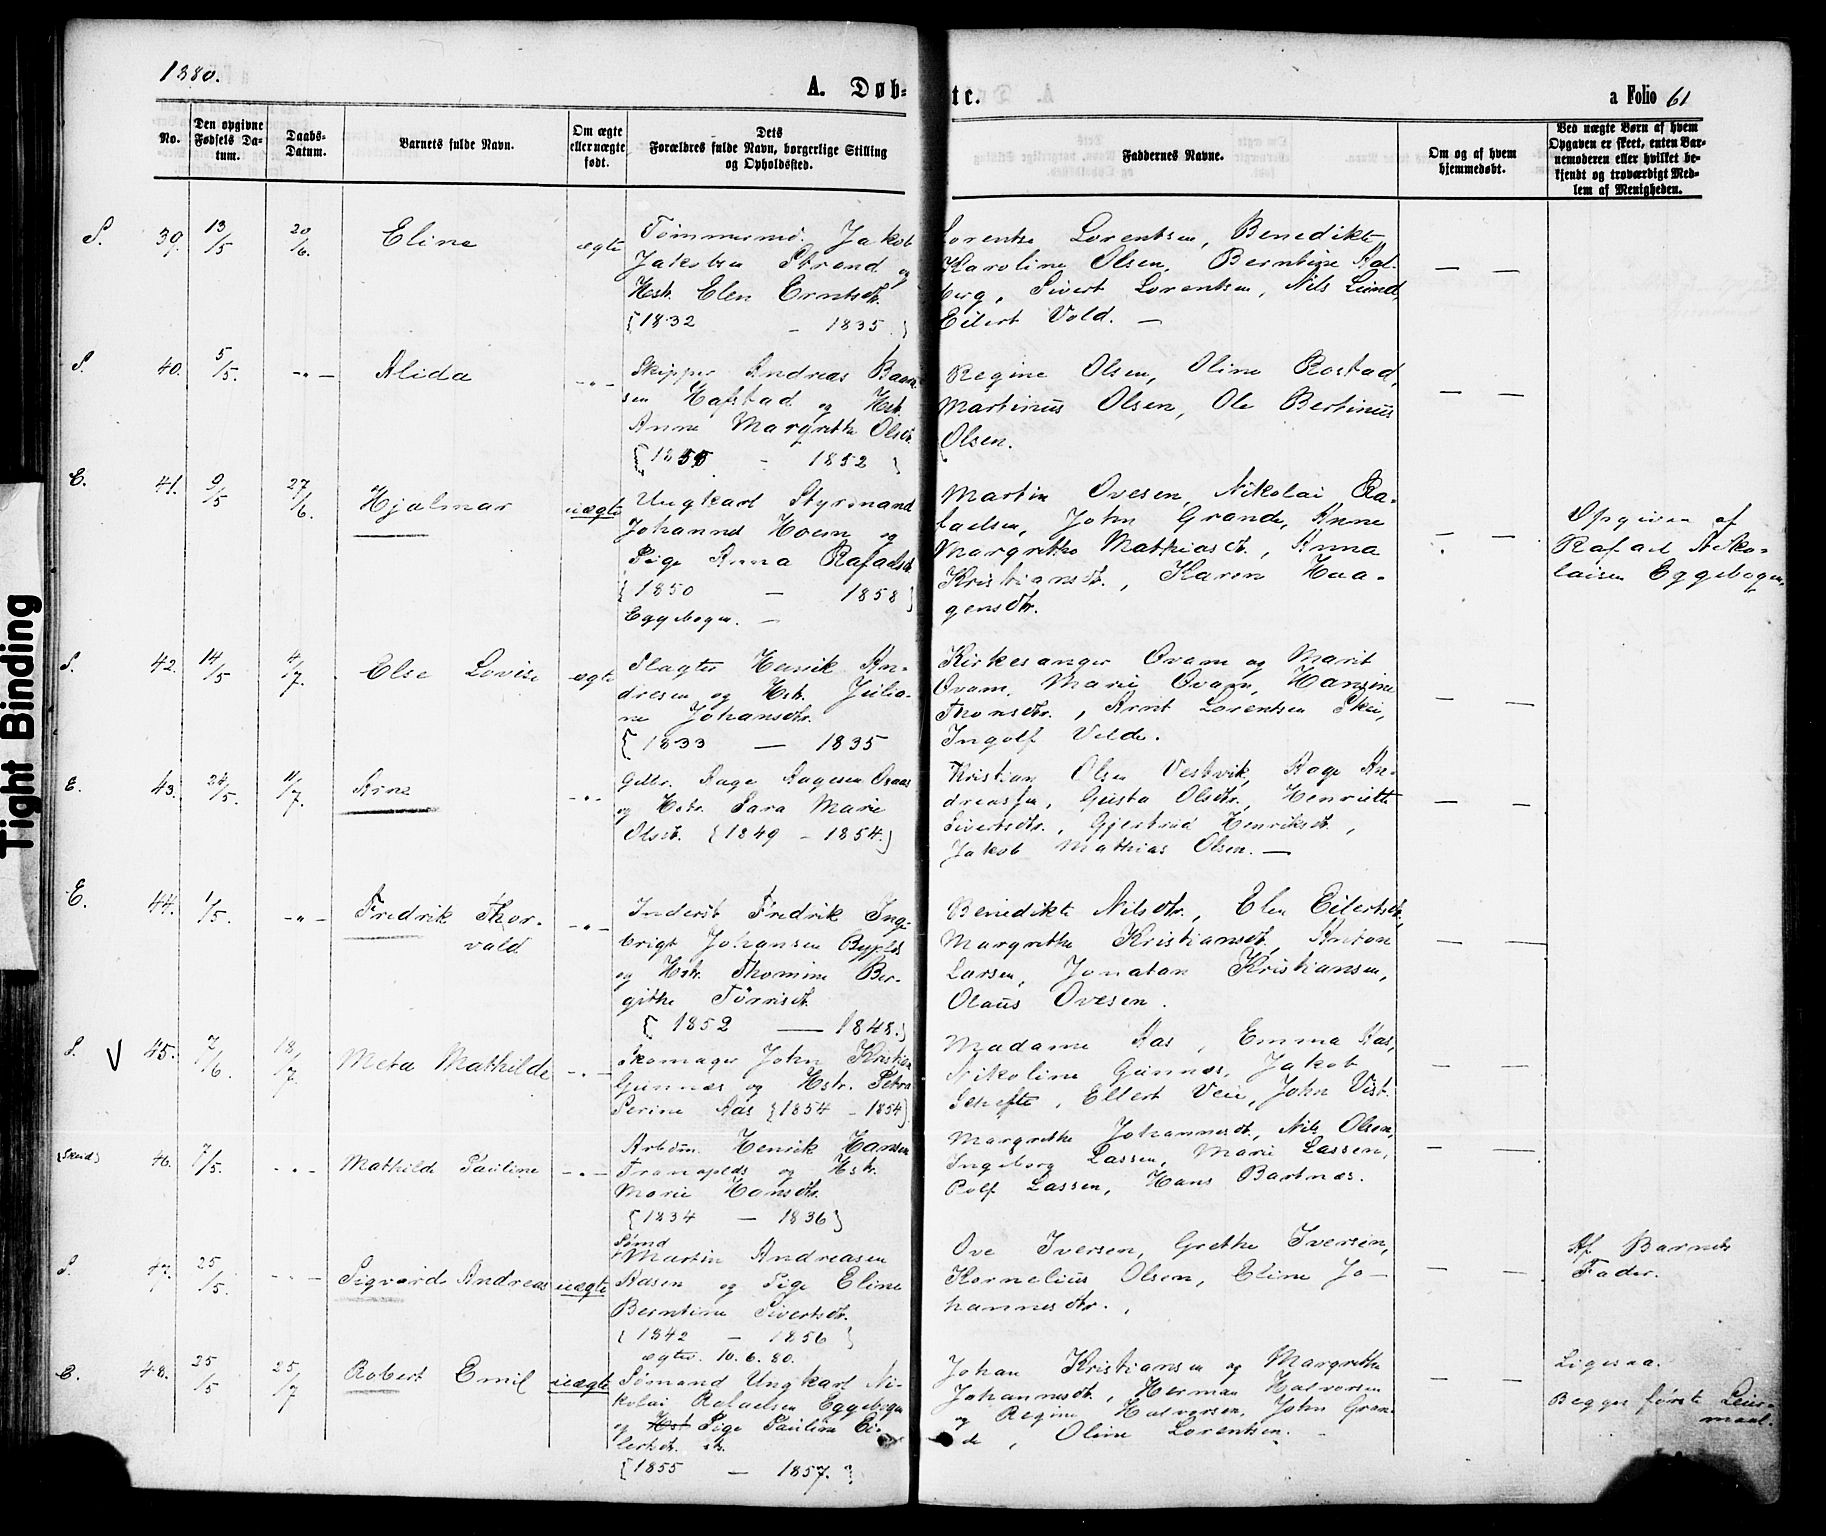 1880.
A. Døb-
te.
a Folio 61
No.
Den opgivne
Fødsels Da-
tum.
Daabs-
Datum.
Barnets fulde Navn.
Om ægte
eller uægte
født.
Dets
Forældres fulde Navn, borgerlige Stilling
og Opholdssted.
Faddernes Navne.
Om og af hvem
hjemmedøbt.
Ved uægte Børn af hvem
Opgaven er skeet, enten Bar-
nemoderen eller hvilket be-
kjendt og troværdigt Med-
lem af Menigheden.
S. 39. 13/5 20/6. Eline ægte
Tømmermd. Jakob
Jakobsen Strand og
Hstr. Elen Erntsdtr.
{1832 - 1835.}
Lorentse Lorentsen, Benedikte
Karoline Olsen, Berntine Aal-
berg, Sivert Lorentsen, Nils Lund,
Eilert Vold. —
— —
S. 40. 5/5. -"- Alida -"-
Skipper Andreas
sen Hafstad og Hstr.
Anne Margrethe Olsdtr.
{1855 - 1852}
Regine Olsen, Oline Rostad,
Martinus Olsen, Ole Bertinus
Olsen.
— —
E. 41. 9/5 27/6. Hjalmar uægte
Ungkarl Styrmand
Johannes Hoem og
Pige Anna Rafaelsdtr.
{1850 — 1858}
Eggebogen. —
Martin Ovesen, Nikolai Ra-
faelsen, John Grande, Anne
Margrethe Mathiasdtr., Anna
Kristiansdtr., Karen Haa-
gensdtr.
— —
Opgiven af
Rafael Niko-
laisen Eggebogen.
S. 42. 14/5 4/7. Else Lovise ægte
Slagter Henrik An-
dresen og Hstr. Julia-
ne Johansdtr.
{1833 — 1835
Kirkesanger Ovam og Marit
Ovam, Marie Ovam, Hansine
Thonsdtr., Arnt Lorentsen Skei,
Ingolf Velde.
— —
E. 43. 24/5. 11/7. Arne -"-
Gbr. Aage Aagesen
og Hstr. Sara Marie
Olsdtr. {1849 - 1854.}
Kristian Olsen Vestvik, Aage An-
dreassen, Gusta Olsdtr., Henriette
Sivertsdtr., Gjertrud Henriksdtr.,
Jakob Mathias Olsen. —
— —
E. 44. 1/5. -"- Fredrik Thor-
vald -"-
Inderst Fredrik Inge-
brigt Johansen
og Hstr. Thomine Ber-
githe Tørrisdtr.
{1852 — 1848.}
Benedikte Nilsdtr., Elen Eilertsdtr.,
Margrethe Kristiansdtr., Anton
Larsen, Jonatan Kristiansen,
Olaus Ovesen.
— —
S. V 45. 7/6. 18/7 Meta Mathilde -"-
Skomager John Kristian
Gunnes og Hstr. Petra
Perine Aas {1854 - 1854}
Madame Aas, Emma Aas,
Nikoline Gunnes, Jakob
Schefte, Ellert Veie, John Vist.
— —
46. 7/5. -"- Mathilde Pauline -"-
Arbdm. Henrik Hansen
Tranaplds og Hstr.
Marie Hansdtr.
{1834 — 1836}
Margrethe Johannesdtr., Nils Olsen,
Ingeborg Lassen, Marie Lassen,
Rolf Lassen, Hans Bartnes.
— —
S. 47. 25/5. -"- Sigvard Andreas uægte
Sømd
Martin Andreasen
Aasen og Pige Eline
Berntine Sivertsdtr.
{1842 — 1856}
ægtev. 10.6.80.
Ove Iversen, Grethe Iversen,
Kornelius Olsen, Eline Jo-
hannesdtr.
— —
Af Barnets
Fader.
E. 48. 25/5 25/7 Robert Emil uægte
Sømand Ungkarl Ni-
kolai Rafaelsen Eggebogen
og Hstr Pige Pauline Ei-
lertsdtr.
{1855 — 1857.}
Johan Kristiansen og Margrethe
Johannesdtr., Herman Halvorsen
og Regine Halvorsen, John Gran-
de, Oline Lorentsen.
— —
Ligesaa.
Begges første Leier-
maal.
Tight Binding